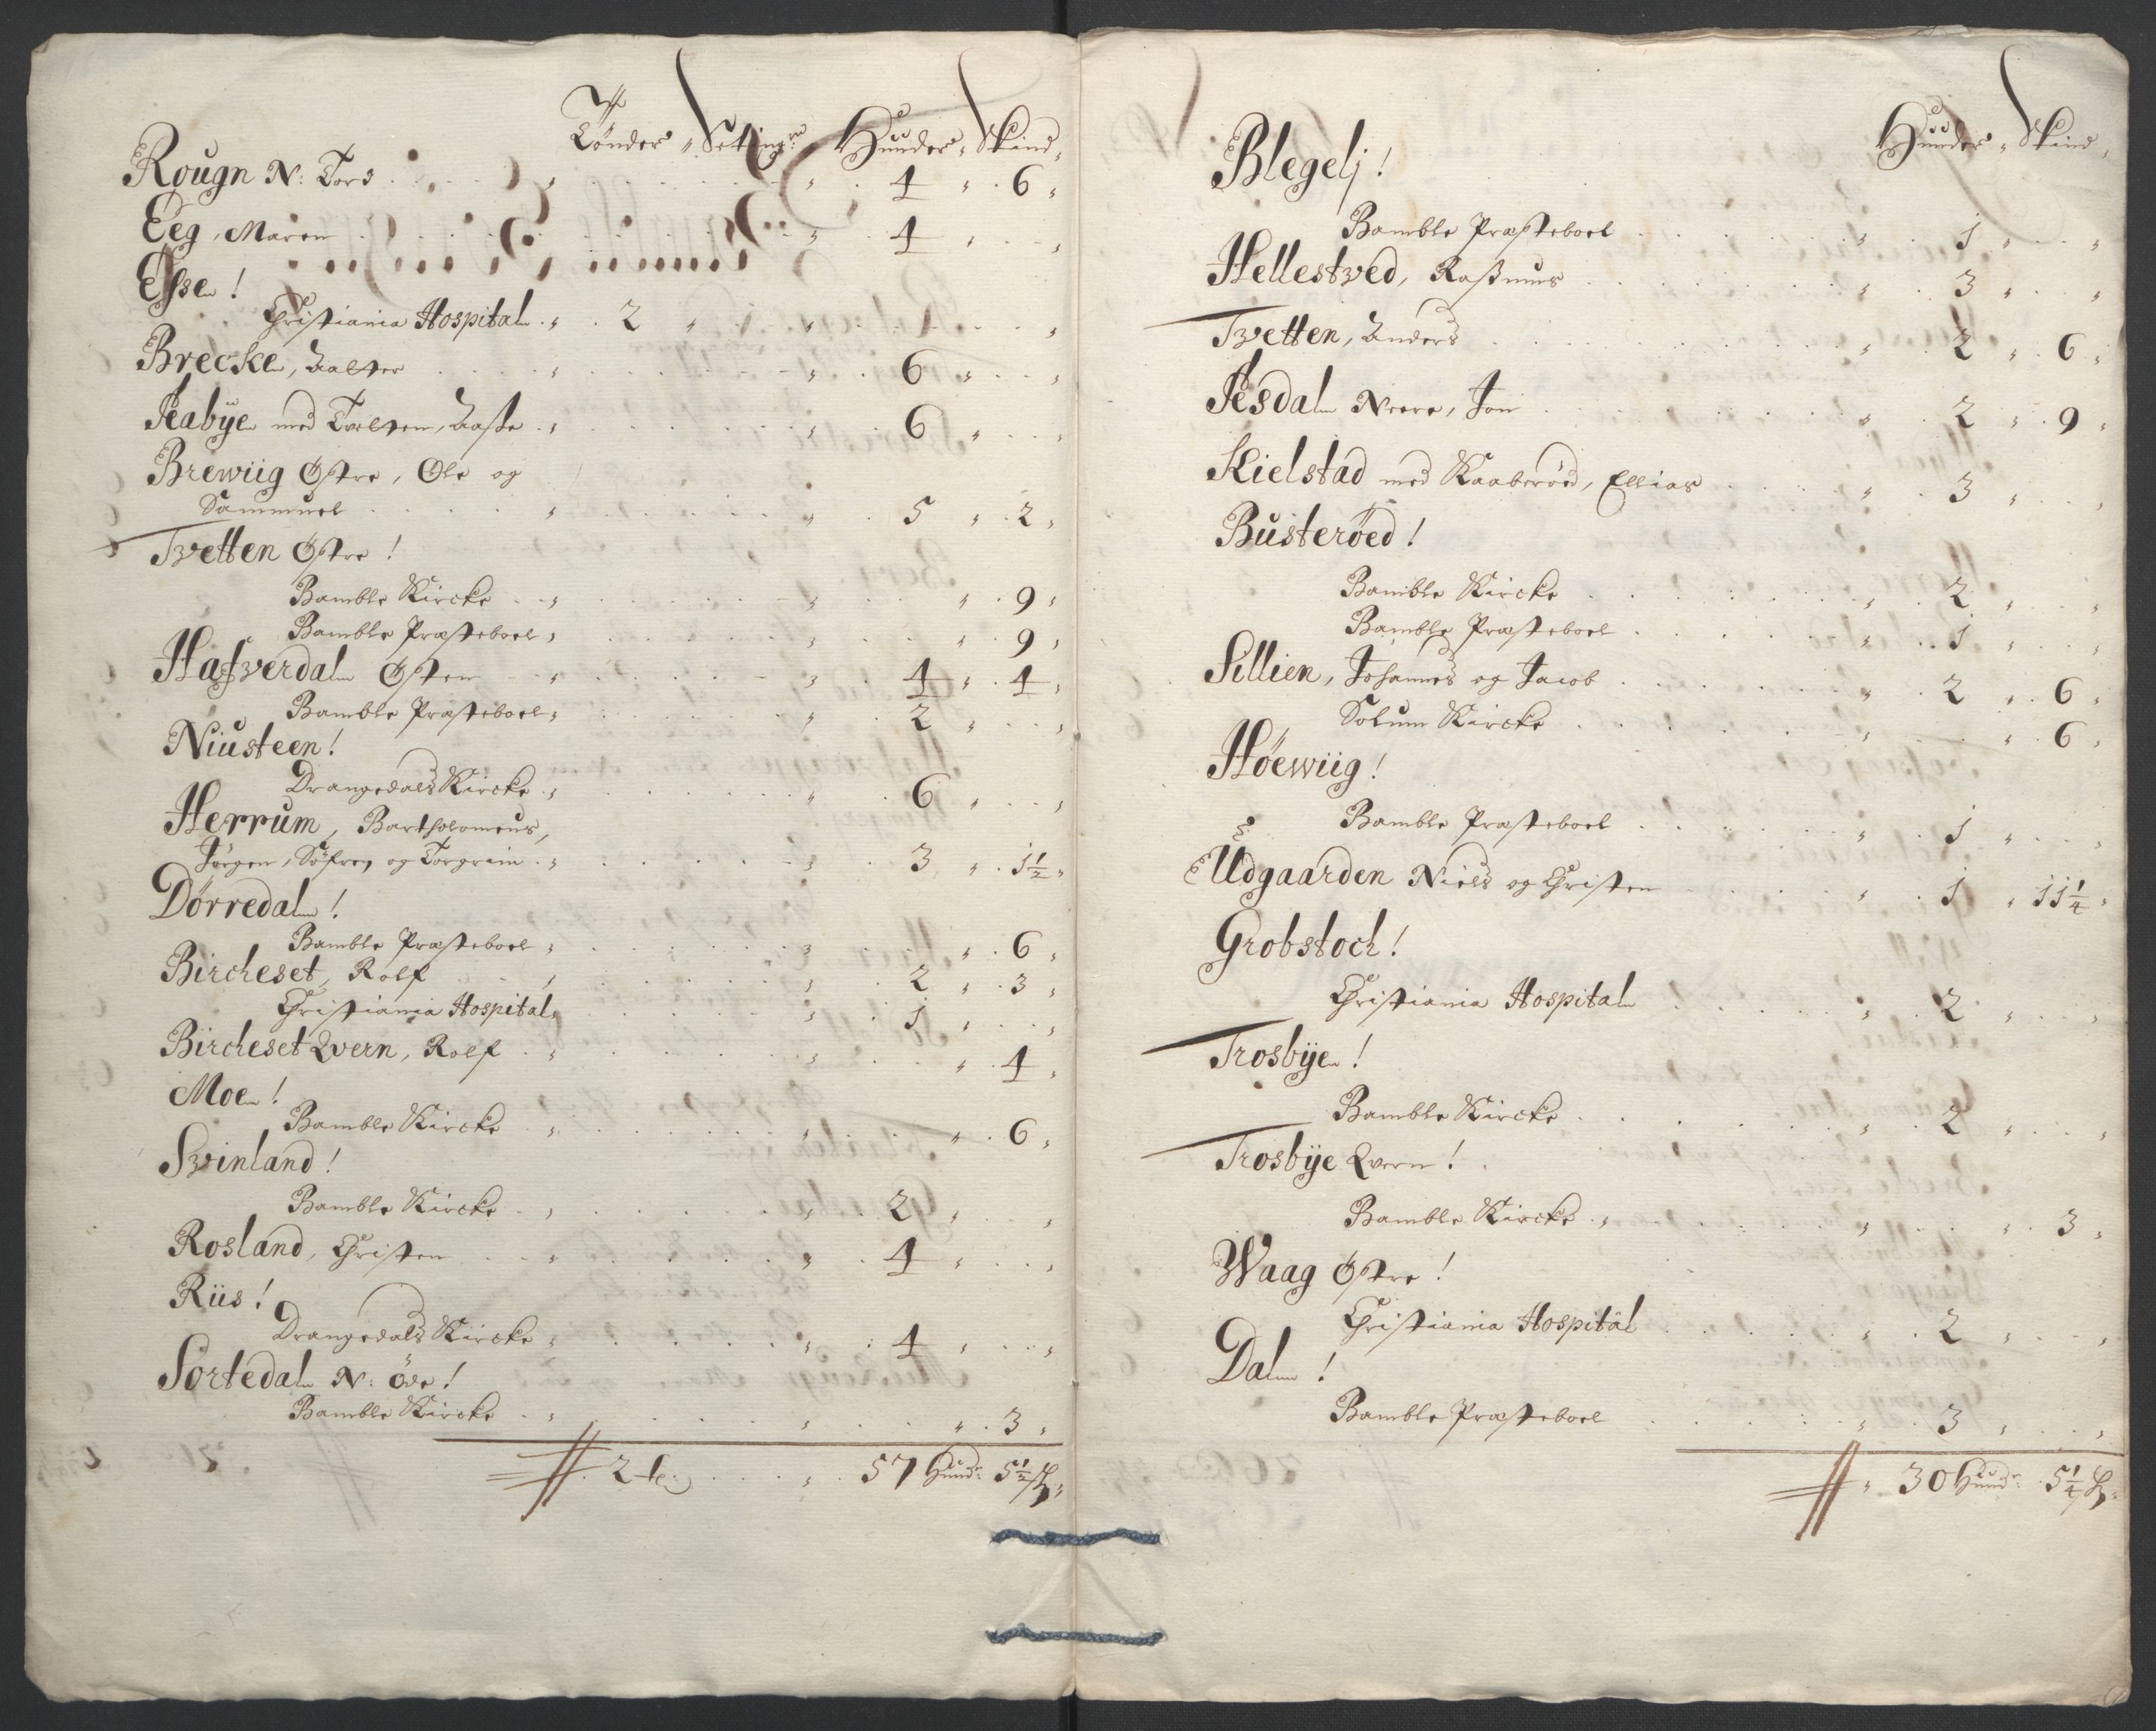 Tønder " Setting " Huuder " Skind "
Rougn N: Tord . . . " . . . " . 4 " . 6 "
Eeg, Maren . . . " . 4 " . . "
Esse !
Christiania Hospital . " . 2 " . . " . . . "
Brecke, Halfver . . . " . . . " . 6 " . . "
Aabÿe med Tvelten, Aasse . " . . . " . 6 " . . "
Brewiig Østre, Ole og
Sammuel . . . " . . . " . 5 " . 2 "
Tvetten Østre !
Bamble Kircke . . " . . . " . . " . 9 "
Bamble Præsteboel " . . . " . . " . 9 "
Hafverdal Østen . . " . . . " . 4 " . 4 "
Bamble Præsteboel " . . . " . 2 " . . "
Niusteen !
Drangedals Kircke . " . . . " . 6 " . . "
Herrum, Bartholomeus,
Jörgen, Söfren og Torgrim . " . . . " . 3 " . 1½ "
Dörredal !
Bamble Præsteboel " . . . " . . " . 6 "
Bircheset, Rolf . . " . . . " . 2 " . 3 "
Christiania Hospital " . . . " . 1 " . . "
Bircheset Qvern, Rolf . " . . . " . . " . 4 "
Moe !
Bamble Kircke . " . . . " . . " . 6 "
Svinland !
Bamble Kircke . " . . . " . 2 " . . "
Rosland, Christen . . " . . . " . 4 " . . "
Riis !
Drangedals Kircke " . . . " . 4 " . . "
Sortedal N: öde !
Bamble Kircke . " . . . " . . " . 3 "
. 2 te: . . " . 57 Hund: 5½ sk "
Huuder " Skind "
Blegelj !
Bamble Præsteboel . . . " . 1 " . . "
Hellestved, Rassmus . . . " . 3 " . . "
Tvetten, Anders . . . " . 2 " . 6 "
Aesdal Nerre, Jon . . . " . 2 " . 9 "
Kielstad med Raaberöed, Ellias . . . " . 3 " . . "
Busteröed !
Bamble Kircke . . . " . 2 " . . "
Bamble Præsteboel . . . " . 1 " . . "
Sillien, Johannes og Jacob . . . " . 2 " . 6 "
Solum Kircke . . . " . . " . 6 "
Höewiig !
Bamble Præsteboel . . . " . 1 " . . "
Udgaarden Niels og Christen . . . " . 1 " 11¼ "
Grobstoch !
Christiania Hospital . . . " . 2 " . . "
Trosbÿe !
Bamble Kircke . . . " . 2 " . . "
Trosbÿe Qvern !
Bamble Kircke . " . . . " . . " . 3 "
Waag Østre !
Christiania Hospital . . . " . 2 " . . "
Dal !
Bamble Præsteboel . . . " . 3 " . . "
" . 30 Hund: . 5¼ sk "